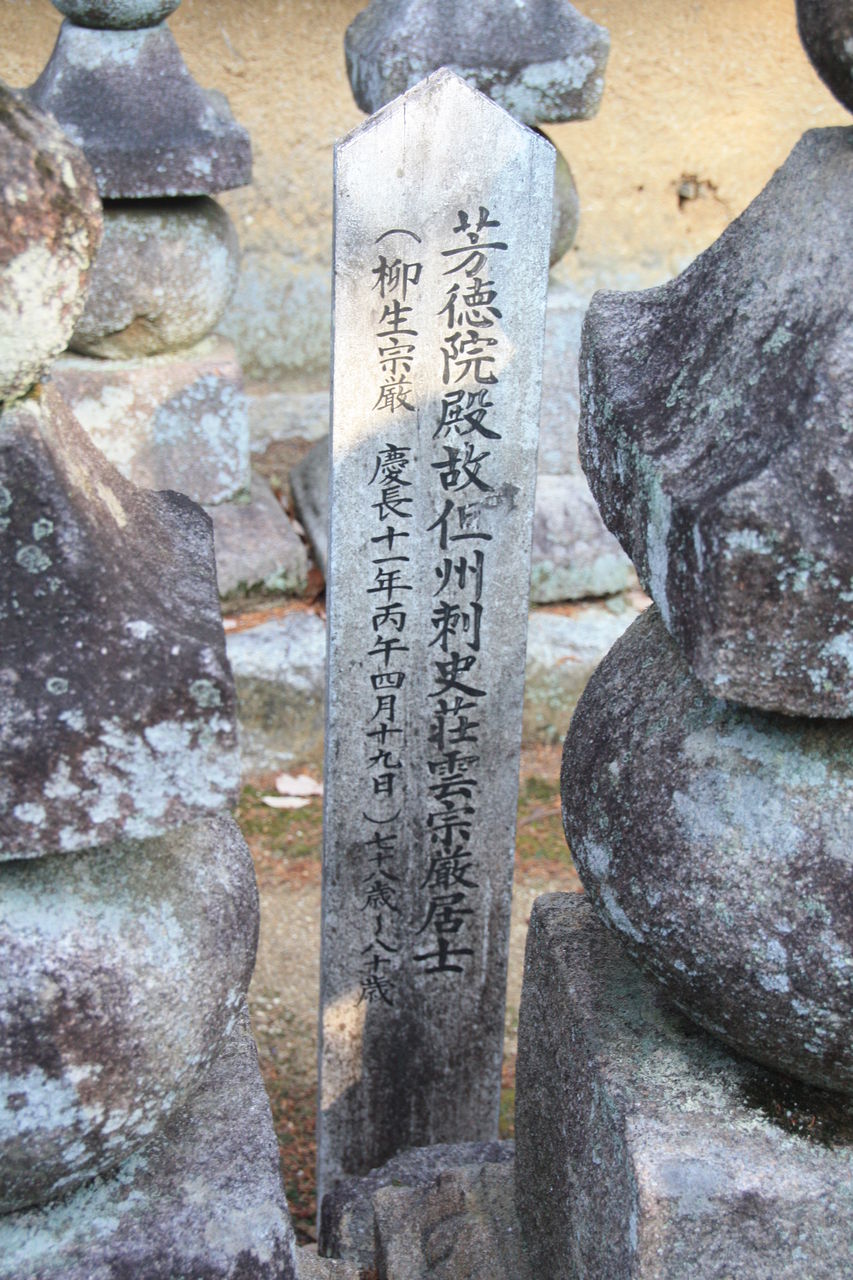 芳徳院殿故但州刺史荘雲宗厳居士
（柳生宗厳 慶長十一年丙午四月十九日）七十八歳～八十歳